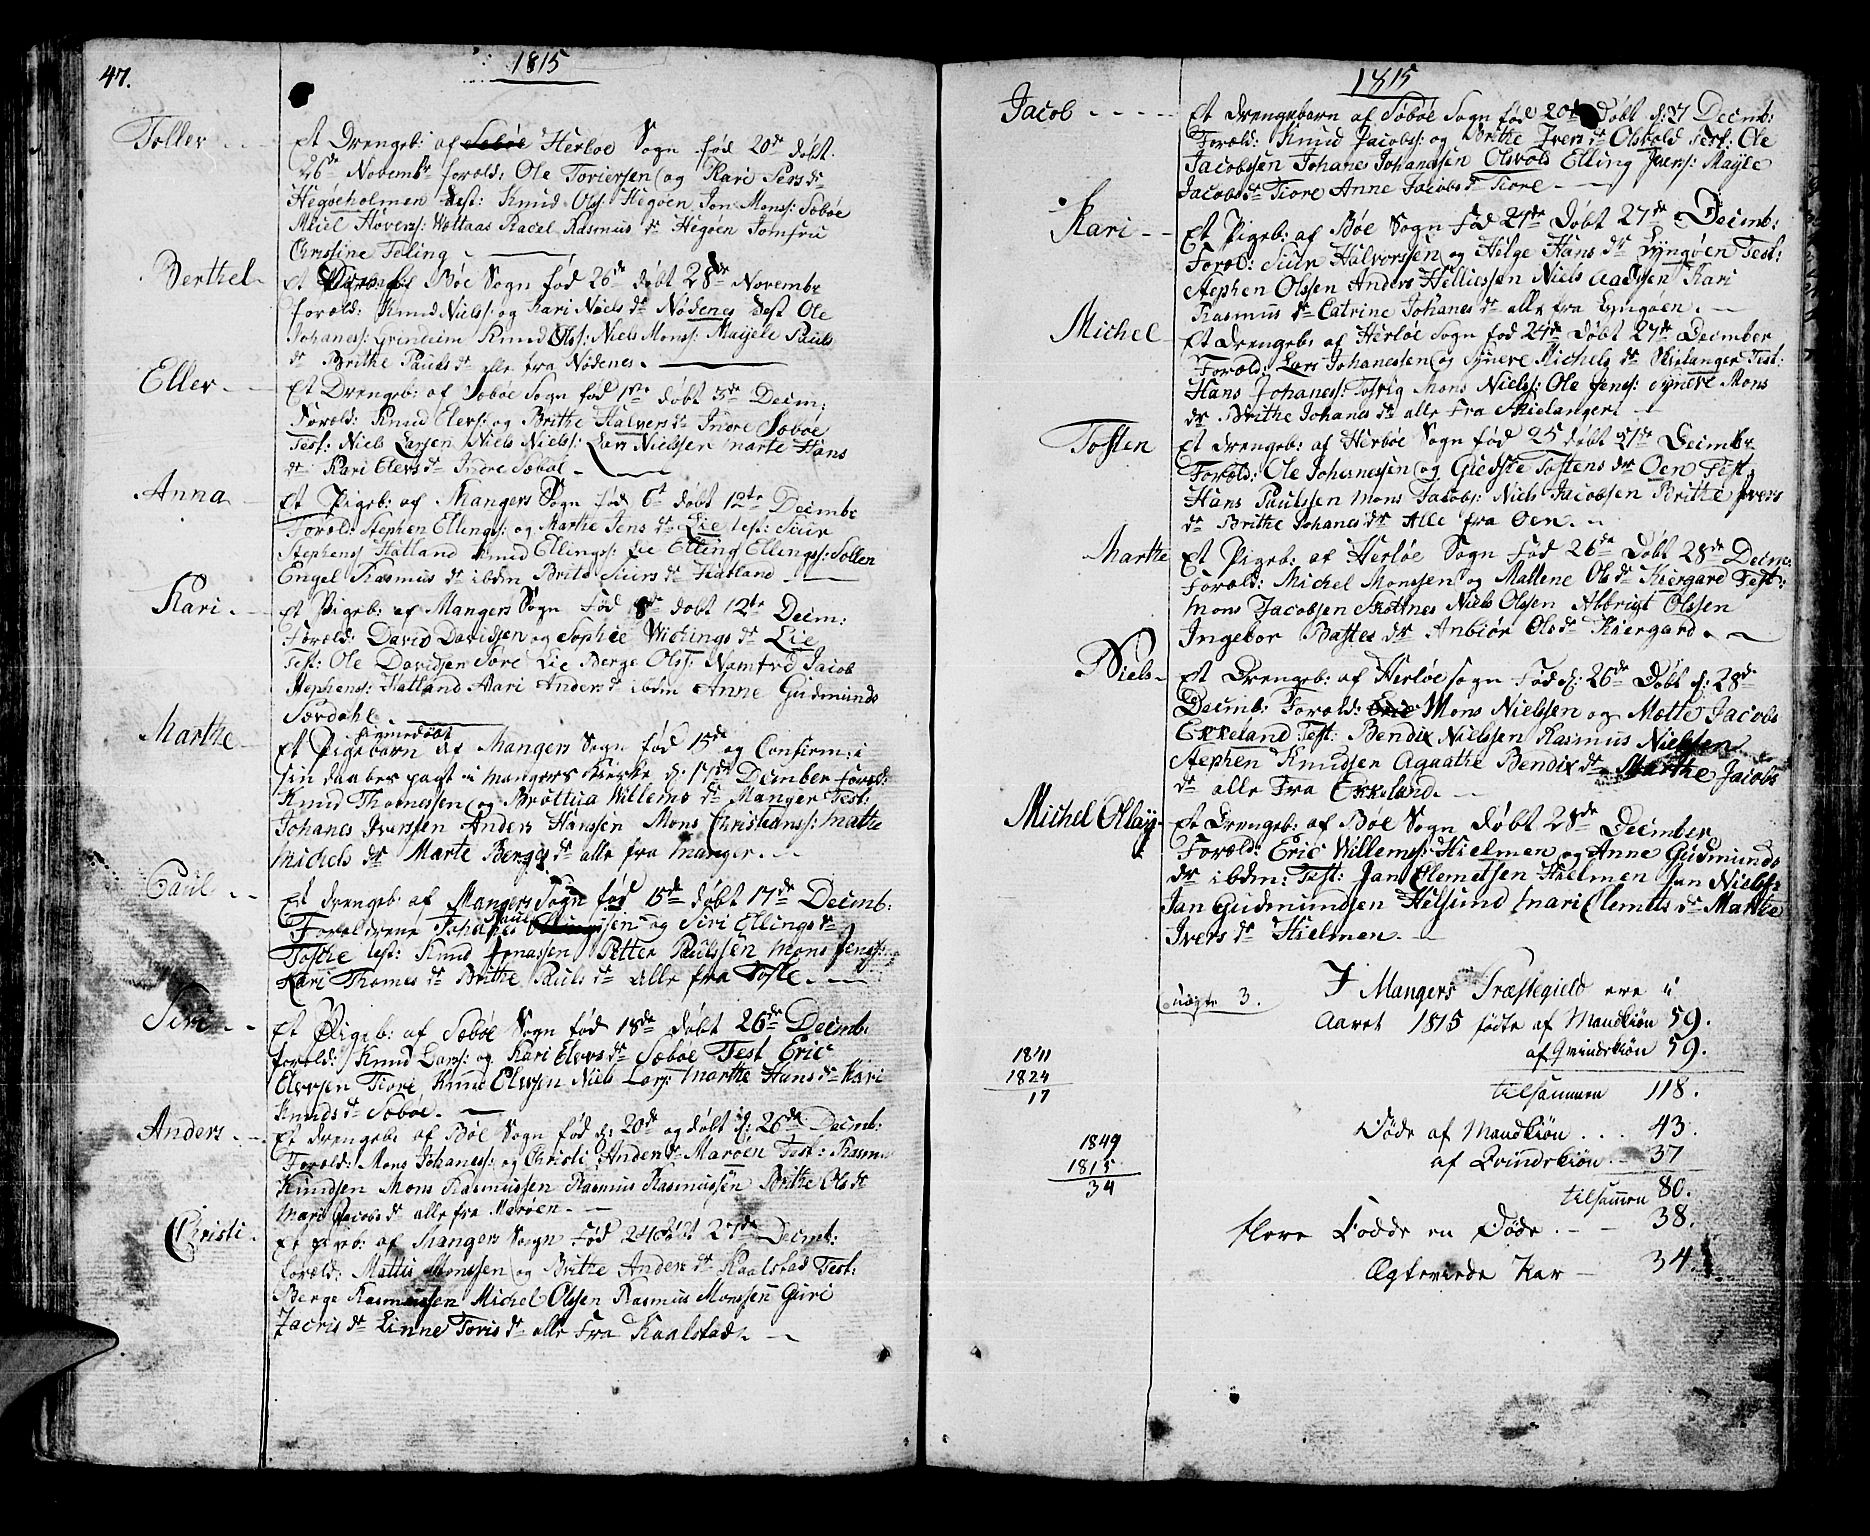 47.
1815
Toller
Et Drengeb: af Seboe Herløe Sogn fød 20de døbt
26de Novembr forold: Ole Toriersen og Kari Pers dr
Hegøeholmen Test: Knud Ols: Hegøen Jon Mons: Sæbøe
Hovers: Rasmus dr Hegøen Jomfru
Christine
Berthel
Et Drengeb Bøe Sogn fød 26de døbt 28de Novembr
forold: Knud Niels: og Kari Niels dr Nødenes Test Ole
Johaness: Grinheim Knud Ols: Niels Mons: Pauls
dr Brithe Pauls dr alle fra Nødenes.
Eller
Et Drengeb: af Sæbøe Sogn fød 1ste døbt 3de Decm:
Forold: Knud Elers: og Brithe Halvers dr Indre Sæbøe
Test: Niels Larsen Niels Niels: Lars Nielssen Marte Hans
dr Kari Elers dr Indre Sæbøe
Anna
Et Pigeb: af Mangers Sogn fød 6t døbt 12te Decmbr
Forold: Stephen Ellings: og Marthe Jens dr Lie Test: Siur
Stephens: Hatland Knud Ellings: Lie Elling Ellings: Sollen
Engel Rasmus dr ibdm Brite Siurs dr Hatland
Kari
Et Pigeb: af Mangers Sogn fød 8de døbt 12te Decm:
Forold: David Davidsen og Sophie dr Lie
Test: Ole Davidsen Lie Berge Ols: Jacob
Stephens: Hatland Kari Anders dr ibdm Anne Gudmunds
Marthe
Hjemedøbt
Et Pigebarn af Mangers Sogn fød 15de og Confirm: i
sin daabes pagt i Mangers Kierke d: 17de December Forold:
Knud Thomessen og Willems dr Manger Test:
Johanes Iverssen Anders Hanssen Mons Christians: Marthe
Michels dr Marte Berges dr alle fra Manger.
Paul
Et drengeb: af Mangers Sogn fød 15de døbt 17de Decmb:
Forældrene Johanes Paulsen og Siri Ellings dr
Toske Test: Knud Jonassen Petter Paulssen Mons Jens:
Kari Thomes dr Brithe Pauls dr alle fra Toske.
Siri
Et Pigeb: af Sæbøe Sogn fød 18de døbt 26de Decmb:
forold: Knud Lars: og Kari Elers dr Sæbøe Test Eric
Elerssen Fiore Knud Elerssen Niels Lars: Marthe Hans dr Kari
Knuds dr Sæbøe.
Anders
Et drengeb: af Bøe Sogn fød d: 20de og døbt d: 26de Decmb:
Forold: Mons Johaness: og Christi Anders dr Marøen Test: Rasmus
Knudsen Mons Rasmussen Rasmus Rasmussen Brithe Ols dr
Mari Jacobs dr alle fra Marøen.
Christi
Et Pigeb: af Mangers Sogn fød 24 døbt 27de Decmb:
forold: Mattis Monssen og Brithe Anders dr Kaalstad Test:
Berge Rasmussen Michel Olssen Rasmus Monssen Guri
Zacris dr Linne Toris dr alle fra Kaalstad.
1815
Jacob
Et drengebarn af Sæbøe Sogn fød 20de døbt d: 27 Decmb:
Forold: Knud Jacobs: og Brithe Ivers dr Olsvold Test: Ole
Jacobssen Johanes Johanessen Olsvold Elling Ivers:
Jacobs dr Fiore Anne Jacobs dr Fiore
Kari
Et Pigeb: af Bøe Sogn fød 24de døbt 27de Decmb:
Forold: Siur Halvorssen og Helge Hans dr Lyngøen Test:
Stephen Olssen Anders Helliessen Niels Kari
Rasmus dr Catrine Johanes dr alle fra Lyngøen.
Michel
Et Drengeb: af Herløe Sogn fød 24de døbt 27de December
Forold: Lars Johanessen og Synneve Michels dr Skielanger Test:
Hans Johaness: Mons Niels: Ole Jens: Synneve Mons
dr Brithe Johanes dr alle fra Skielanger
Tosten
Et drengeb: af Herløe Sogn fød 25 døbt 27de Decmbr
Forold: Ole Johanessen og Giedske Tostens dr Oen Test:
Hans Paulssen Mons Jacobs: Niels Jacobsen Brithe Ivers
dr Brithe Johanes dr Alle fra Oen.
Marthe
Et Pigeb: af Herløe Sogn fød 26de døbt 28de Decm:
Forold: Michel Monssen og Mallene Ols dr Kiergard Test:
Mons Jacobsen Skottnes Niels Olssen Abbrigt Olssen
Ingebor Bastes dr Anbiør Ols dr Kiergard.
Niels
Et Drengeb: af Herløe sogn Fød d: 26de døbt d: 28de
Decmb: Forold: Eric Mons Nielssen og Mette Jacobs
Ekkeland Test: Bendix Nielssen Rasmus Nielssen
Stephen Knudsen Aguathe Bendix dr Marthe Jacobs
dr alle fra Ekkeland.
Michel Ollay
Et Drengeb: af Bøe Sogn døbt 28de December
Forold: Eric Willems: Hielmen og Anne Gudmunds
dr ibdm: Test: Jan Clemetsen Hielmen Jan Niels:
Jan Gudmundsen Helsund Mari Clemets dr Marthe
Ivers dr Hielmen.
uægte 3.
I Mangers Præstegield ere i
Aaret 1815 fødte af Mandkiøn 59.
af Qvindekiøn 59.
tilsammen 118.
Døde af Mandkiøn . . . . 43.
af Qvindekiøn. 37
tilsamen 80.
flere Fødde en Døde . 38.
Ægteviede Par 34
1841
1824
17
1849
1815
34